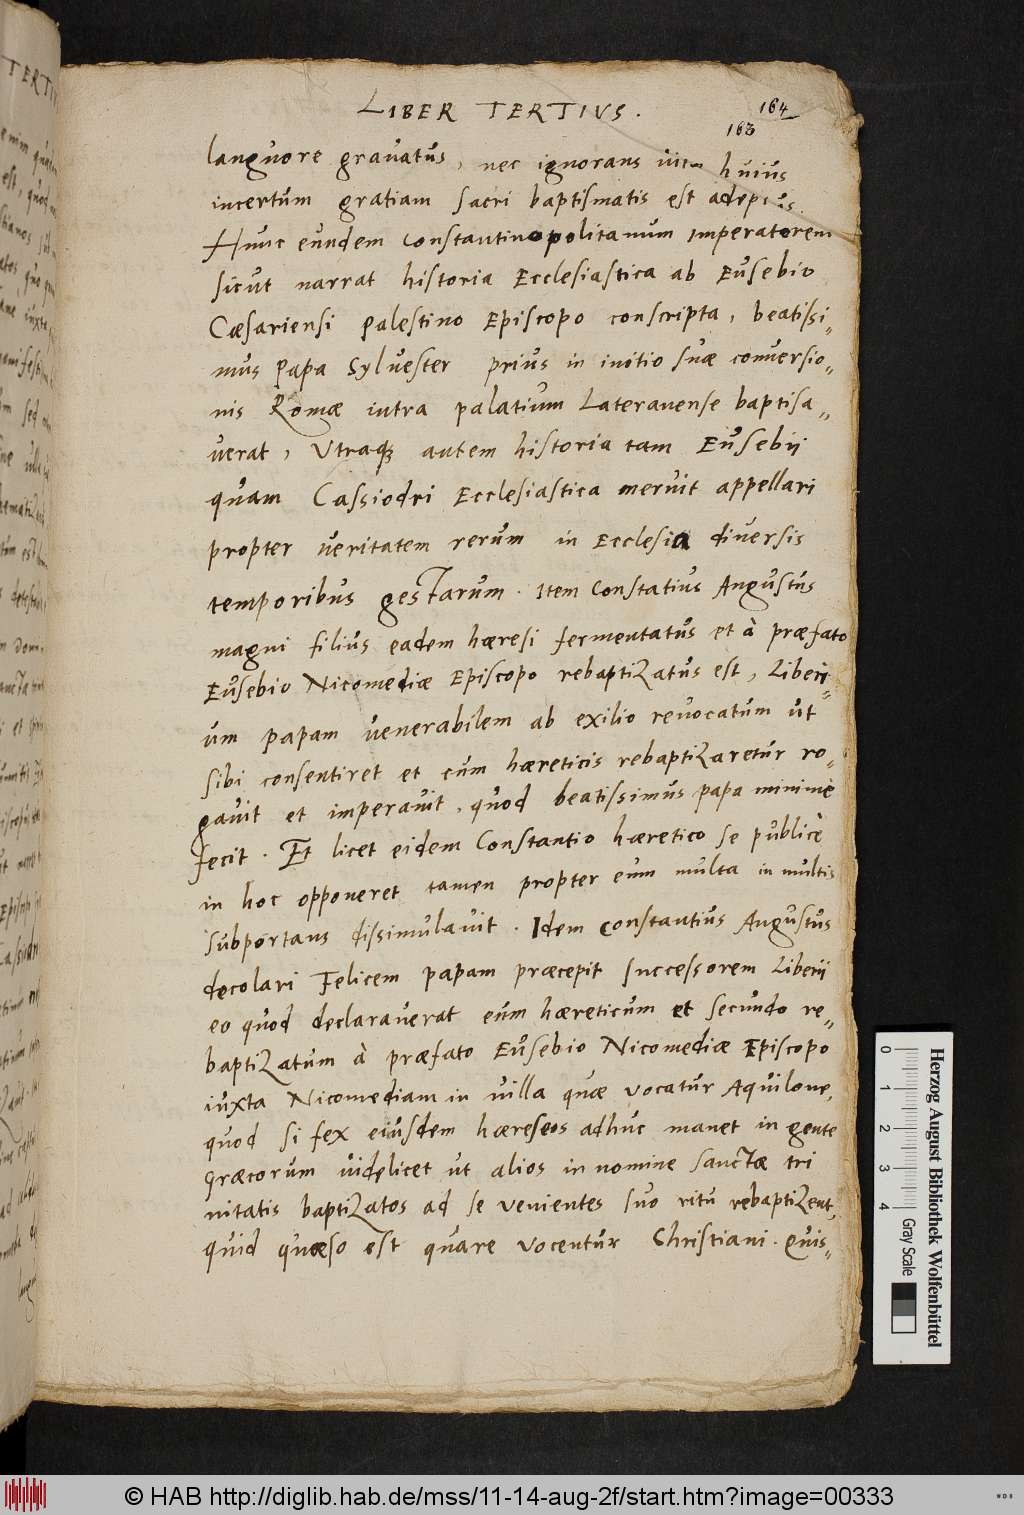 LIBER TERTIVS.
164
163
languore grauatus, nec ignorans huius
incertum gratiam sacri baptismatis est adeptus.
Hunc eundem constantinopolitanum imperatorem
sicut narrat historia Ecclesiastica ab Eusebio
Cæsariensi palestino Episcopo conscripta, beatissi„
mus Papa Sylvester prius in initio suæ conversio„
nis Romæ intra palatium Lateranense baptisa„
verat, Vtraq; autem historia tam Eusebii
quam Cassiodri Ecclesiastica meruit appellari
propter veritatem rerum in Ecclesia diversis
temporibus gestarum. Item Constatius Augustus
magni filius eadem hæresi fermentatus et à præfato
Eusebio Nicomediæ Episcopo rebaptizatus est, Liberi„
um papam venerabilem ab exilio revocatum ut
sibi consentiret et cum hæreticis rebaptizaretur ro„
gavit et imperavit, quod beatissimus papa minimè
fecit. Et licet eidem Constantio hæretico se publicè
in hoc opponeret tamen propter eum multa in multis
subportans dissimulavit. Idem Constantius Augustus
decolari Felicem papam præcepit successorem Liberii
eo quod declaraverat eum hæreticum et secundo re„
baptizatum à præfato Eusebio Nicomediæ Episcopo
iuxta Nicomediam in villa quæ vocatur Aquilone,
quod si fex eiusdem hæreseos adhuc manet in gente
Græcorum videlicet ut alios in nomine sanctæ tri
nitatis baptizatos ad se venientes suo ritu rebaptizent,
quid quæso est quare vocentur Christiani. Quis„
TERTIV
Herzog August Bibliothek Wolfenbüttel
0 1 2 3 4
Gray Scale
© HAB http://diglib.hab.de/mss/11-14-aug-2f/start.htm?image=00333